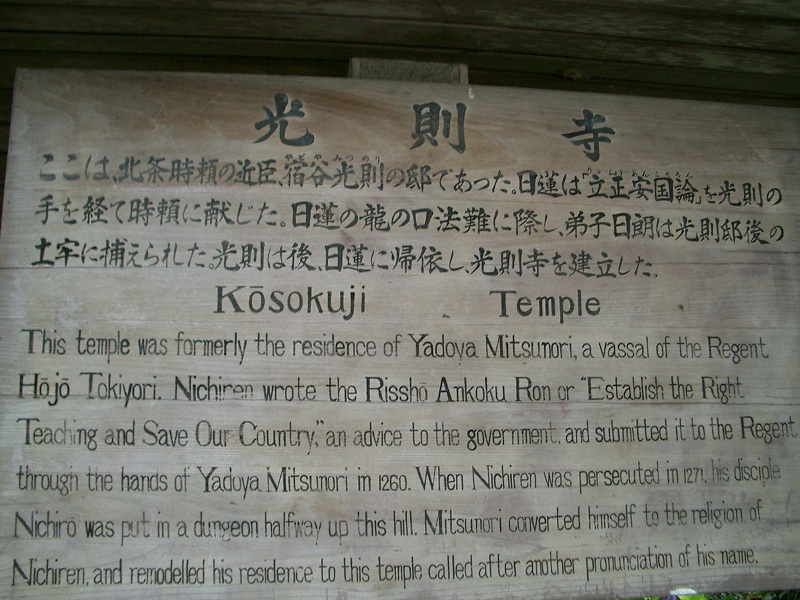 光則寺
ここは、北条時頼の近臣、宿谷光則の邸であった。日蓮は「立正安国論」を光則の
手を経て時頼に献じた。日蓮の龍の口法難に際し、弟子日朗は光則邸後の
土牢に捕えられた。光則は後、日蓮に帰依し、光則寺を建立した。
Kōsokuji Temple
This temple was formerly the residence of Yadoya Mitsunori, a vassal of the Regent
Hōjō Tokiyori. Nichiren wrote the Risshō Ankoku Ron or "Establish the Right
Teaching and Save Our Country," an advice to the government, and submitted it to the Regent
through the hands of Yadoya Mitsunori in 1260. When Nichiren was persecuted in 1271, his disciple
Nichirō was put in a dungeon halfway up this hill. Mitsunori converted himself to the religion of
Nichiren, and remodelled his residence to this temple called after another pronunciation of his name.